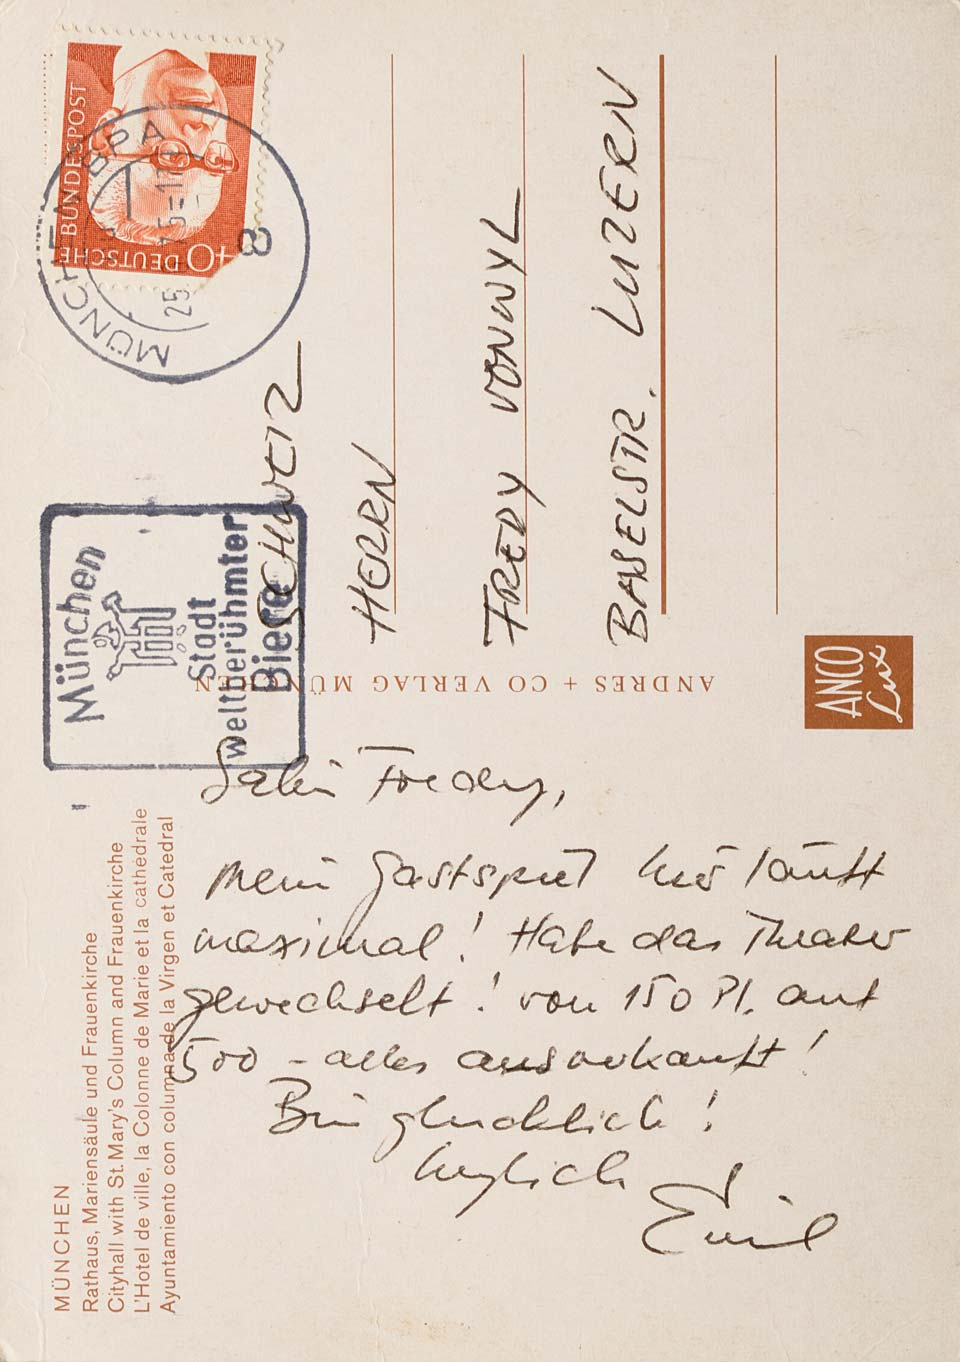 MÜNCHEN
Rathaus, Mariensäule und Frauenkirche
Cityhall with St. Mary's Column and Frauenkirche
L'Hotel de ville, la Colonne de Marie et la cathédrale
Ayuntamiento con columna de la Virgen et Catedral
Salü Fredy,
mein Gastspiel hier läuft
maximal! Habe das Theater
gewechselt! von 150 Pl. auf
500 – alles ausverkauft!
Bin glücklich!
herzlich
Emil
ANDRES + CO VERLAG MÜNCHEN
ANCO
Lux
München
Stadt
weltberühmter
Biere
DEUTSCHE BUNDESPOST
40
MÜNCHEN BPA
25
8
SCHWEIZ
HERRN
FREDY VONWYL
BASELSTR. LUZERN